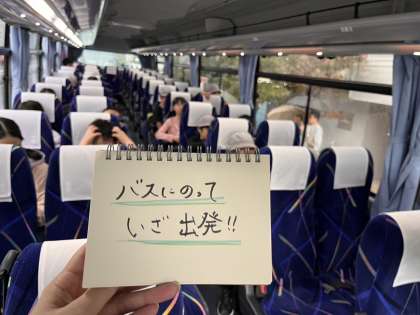 バスにのって
いざ出発!!